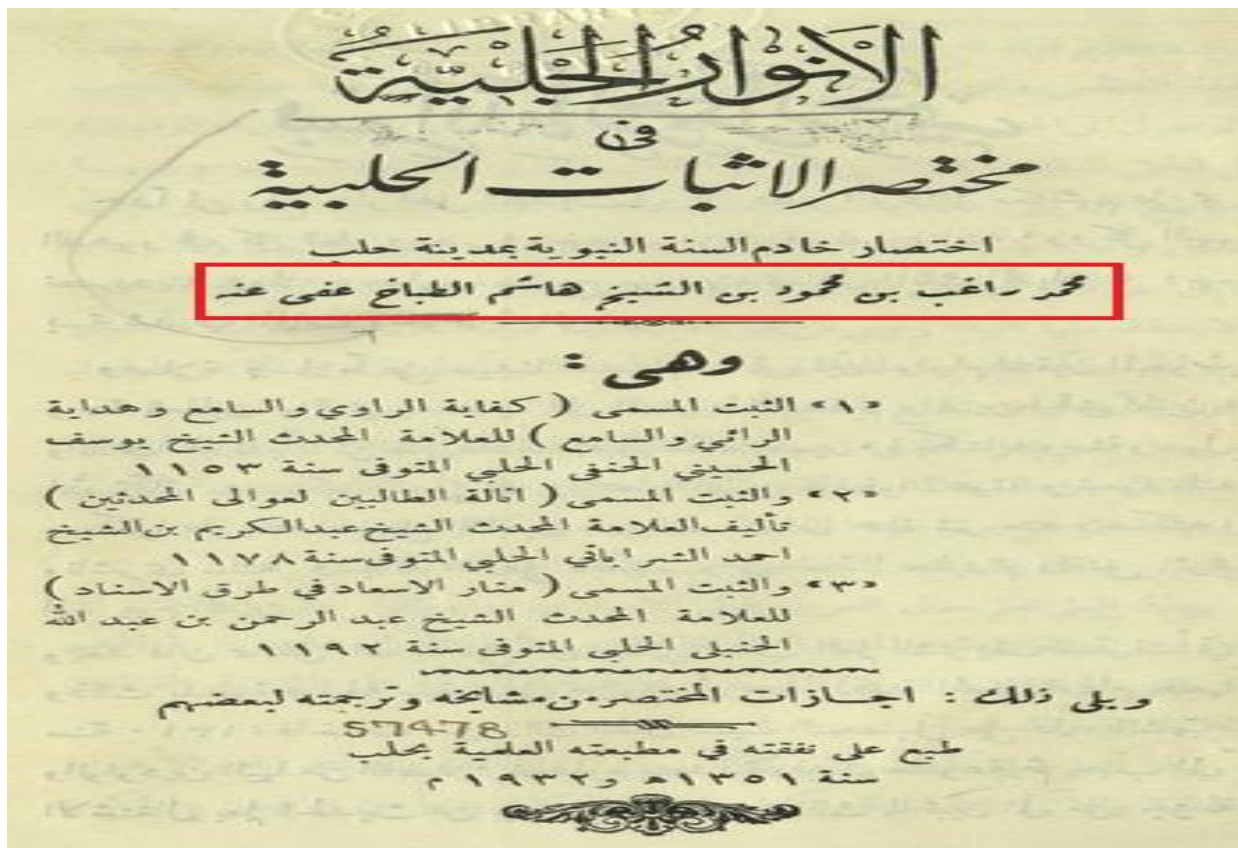 الانوار الجلية
في
مختصر الاثبات الحلبية
اختصار خادم السنة النبوية بمدينة حلب
محمد راغب بن محمود بن الشيخ هاشم الطباخ عفى عنه
وهى :
«١» الثبت المسمى ( كفاية الراوي والسامع وهداية
الرائي والسامع ) للعلامة المحدث الشيخ يوسف
الحسيني الحنفي الحلبي المتوفى سنة ١١٥٣
«٢» والثبت المسمى ( انالة الطالبين لعوالى المحدثين )
تأليف العلامة المحدث الشيخ عبدالكريم بن الشيخ
احمد الشراباتي الحلبي المتوفى سنة ١١٧٨
«٣» والثبت المسمى ( منار الاسعاد في طرق الاسناد )
للعلامة المحدث الشيخ عبد الرحمن بن عبد الله
الحنبلي الحلبي المتوفى سنة ١١٩٢
ويلى ذلك : اجازات المختصر من مشايخه وترجمته لبعضهم
57478
طبع على نفقته في مطبعته العلمية بحلب
سنة ١٣٥١ھ و ١٩٣٢ م